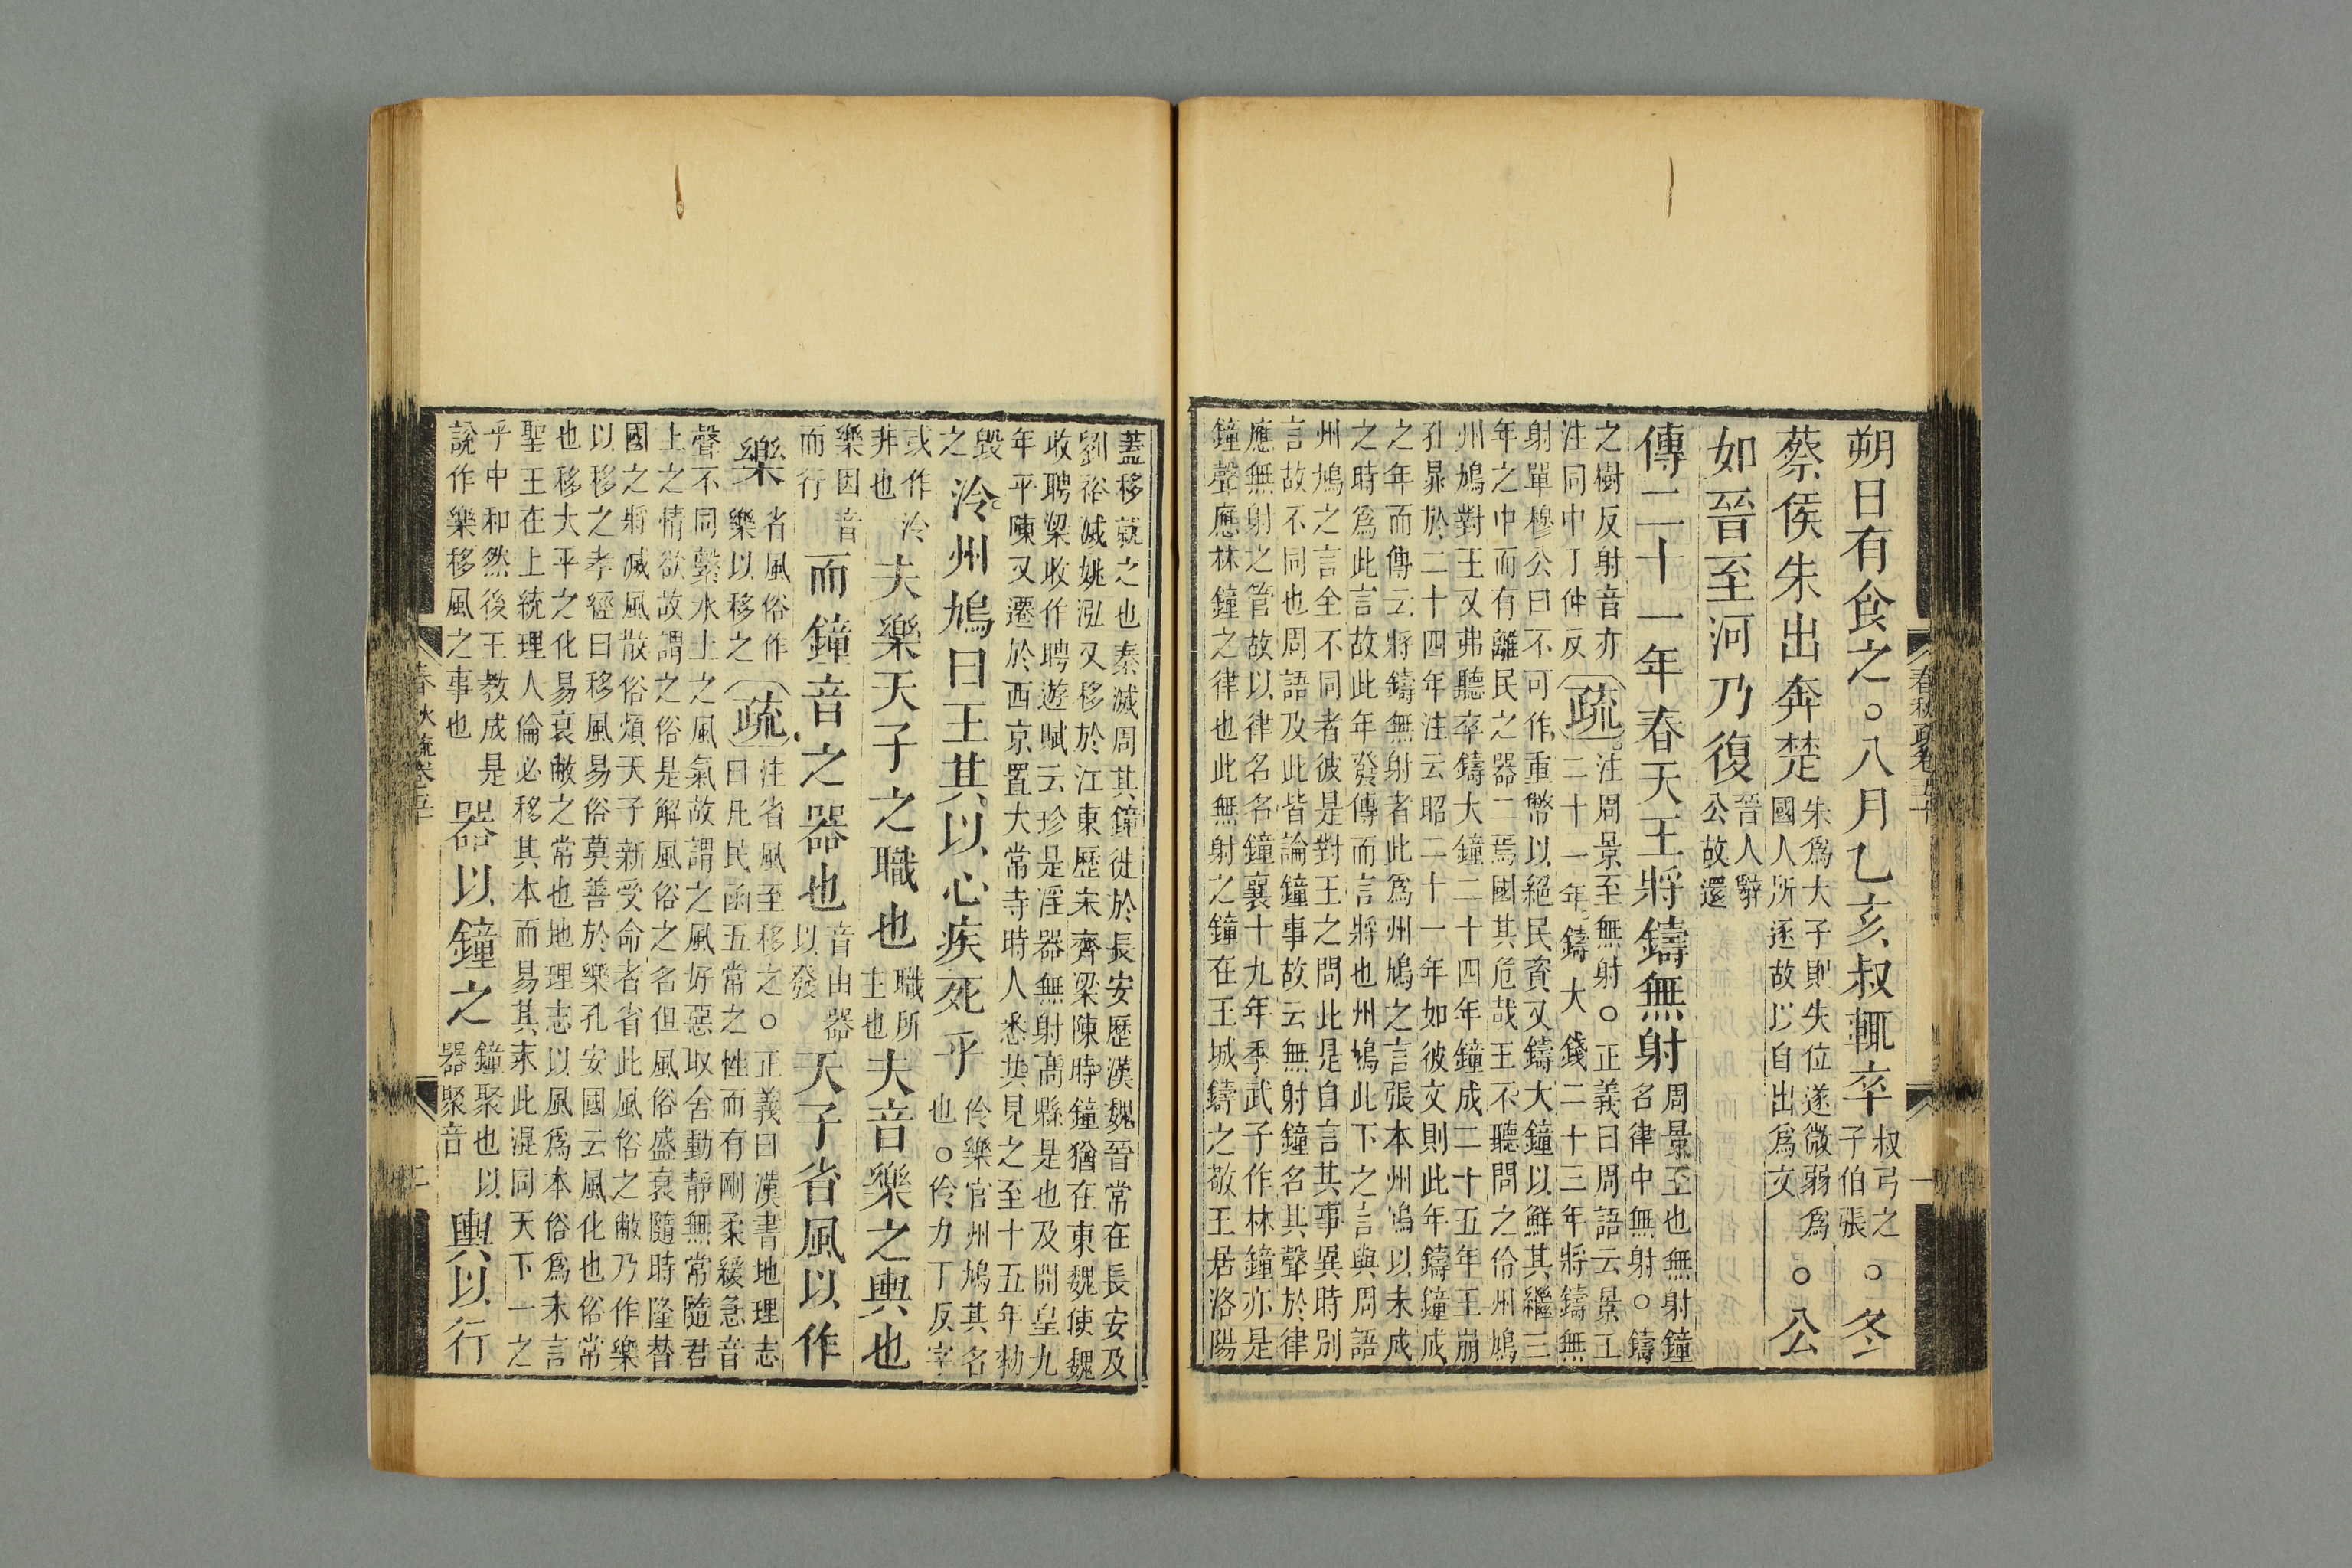 朔日有食之○八月乙亥叔輒卒叔弓之子伯張○冬
蔡侯朱出奔楚朱爲大子則失位遂微弱爲國人所逐故以自出爲文○公
如晉至河乃復晉人辭公故還
傳二十一年春天王將鑄無射周景王也無射鐘名律中無射○鑄
之樹反射音亦
注同中丁仲反疏注周景至無射○正義曰周語云景王
二十一年鑄大錢二十三年將鑄無
射單穆公曰不可作重幣以絕民資又鑄大鐘以鮮其繼三
年之中而有離民之器二焉國其危哉王不聽問之伶州鳩
州鳩對王又弗聽卒鑄大鐘二十四年鐘成二十五年王崩
孔晁於二十四年注云昭二十一年如彼文則此年鑄鐘成
之年而傳云將鑄無射者此爲州鳩之言張本州鳩以未成
之時爲此言故此年發傳而言將也州鳩此下之言與周語
州鳩之言全不同者彼是對王之問此是自言其事異時別
言故不同也周語及此皆論鐘事故云無射鐘名其聲於律
應無射之管故以律名名鐘襄十九年季武子作林鐘亦是
鐘聲應林鐘之律也此無射之鐘在王城鑄之敬王居洛陽
蓋移就之也秦滅周其鐘徙於長安歷漢魏晉常在長安及
劉裕滅姚泓又移於江東歷宋齊梁陳時鐘猶在東魏使魏
收聘梁收作聘遊賦云珍是淫器無射高縣是也及開皇九
年平陳又遷於西京置大常寺時人悉共見之至十五年勑
毀
之泠州鳩曰王其以心疾死乎伶樂官州鳩其名也○伶力丁反字
或作泠
非也夫樂天子之職也職所主也夫音樂之輿也
樂因音
而行而鐘音之器也音由器以發天子省風以作
樂省風俗作樂以移之疏注省風至移之○正義曰漢書地理志
曰凡民函五常之性而有剛柔緩急音
聲不同繫水土之風氣故謂之風好惡取舍動靜無常隨君
上之情欲故謂之俗是解風俗之名但風俗盛衰隨時隆替
國之將滅風散俗煩天子新受命者省此風俗之敝乃作樂
以移之孝經曰移風易俗莫善於樂孔安國云風化也俗常
也移大平之化易衰敝之常也地理志以風爲本俗爲末言
聖王在上統理人倫必移其本而易其末此混同天下一之
乎中和然後王教成是
說作樂移風之事也器以鐘之鐘聚也以器聚音輿以行